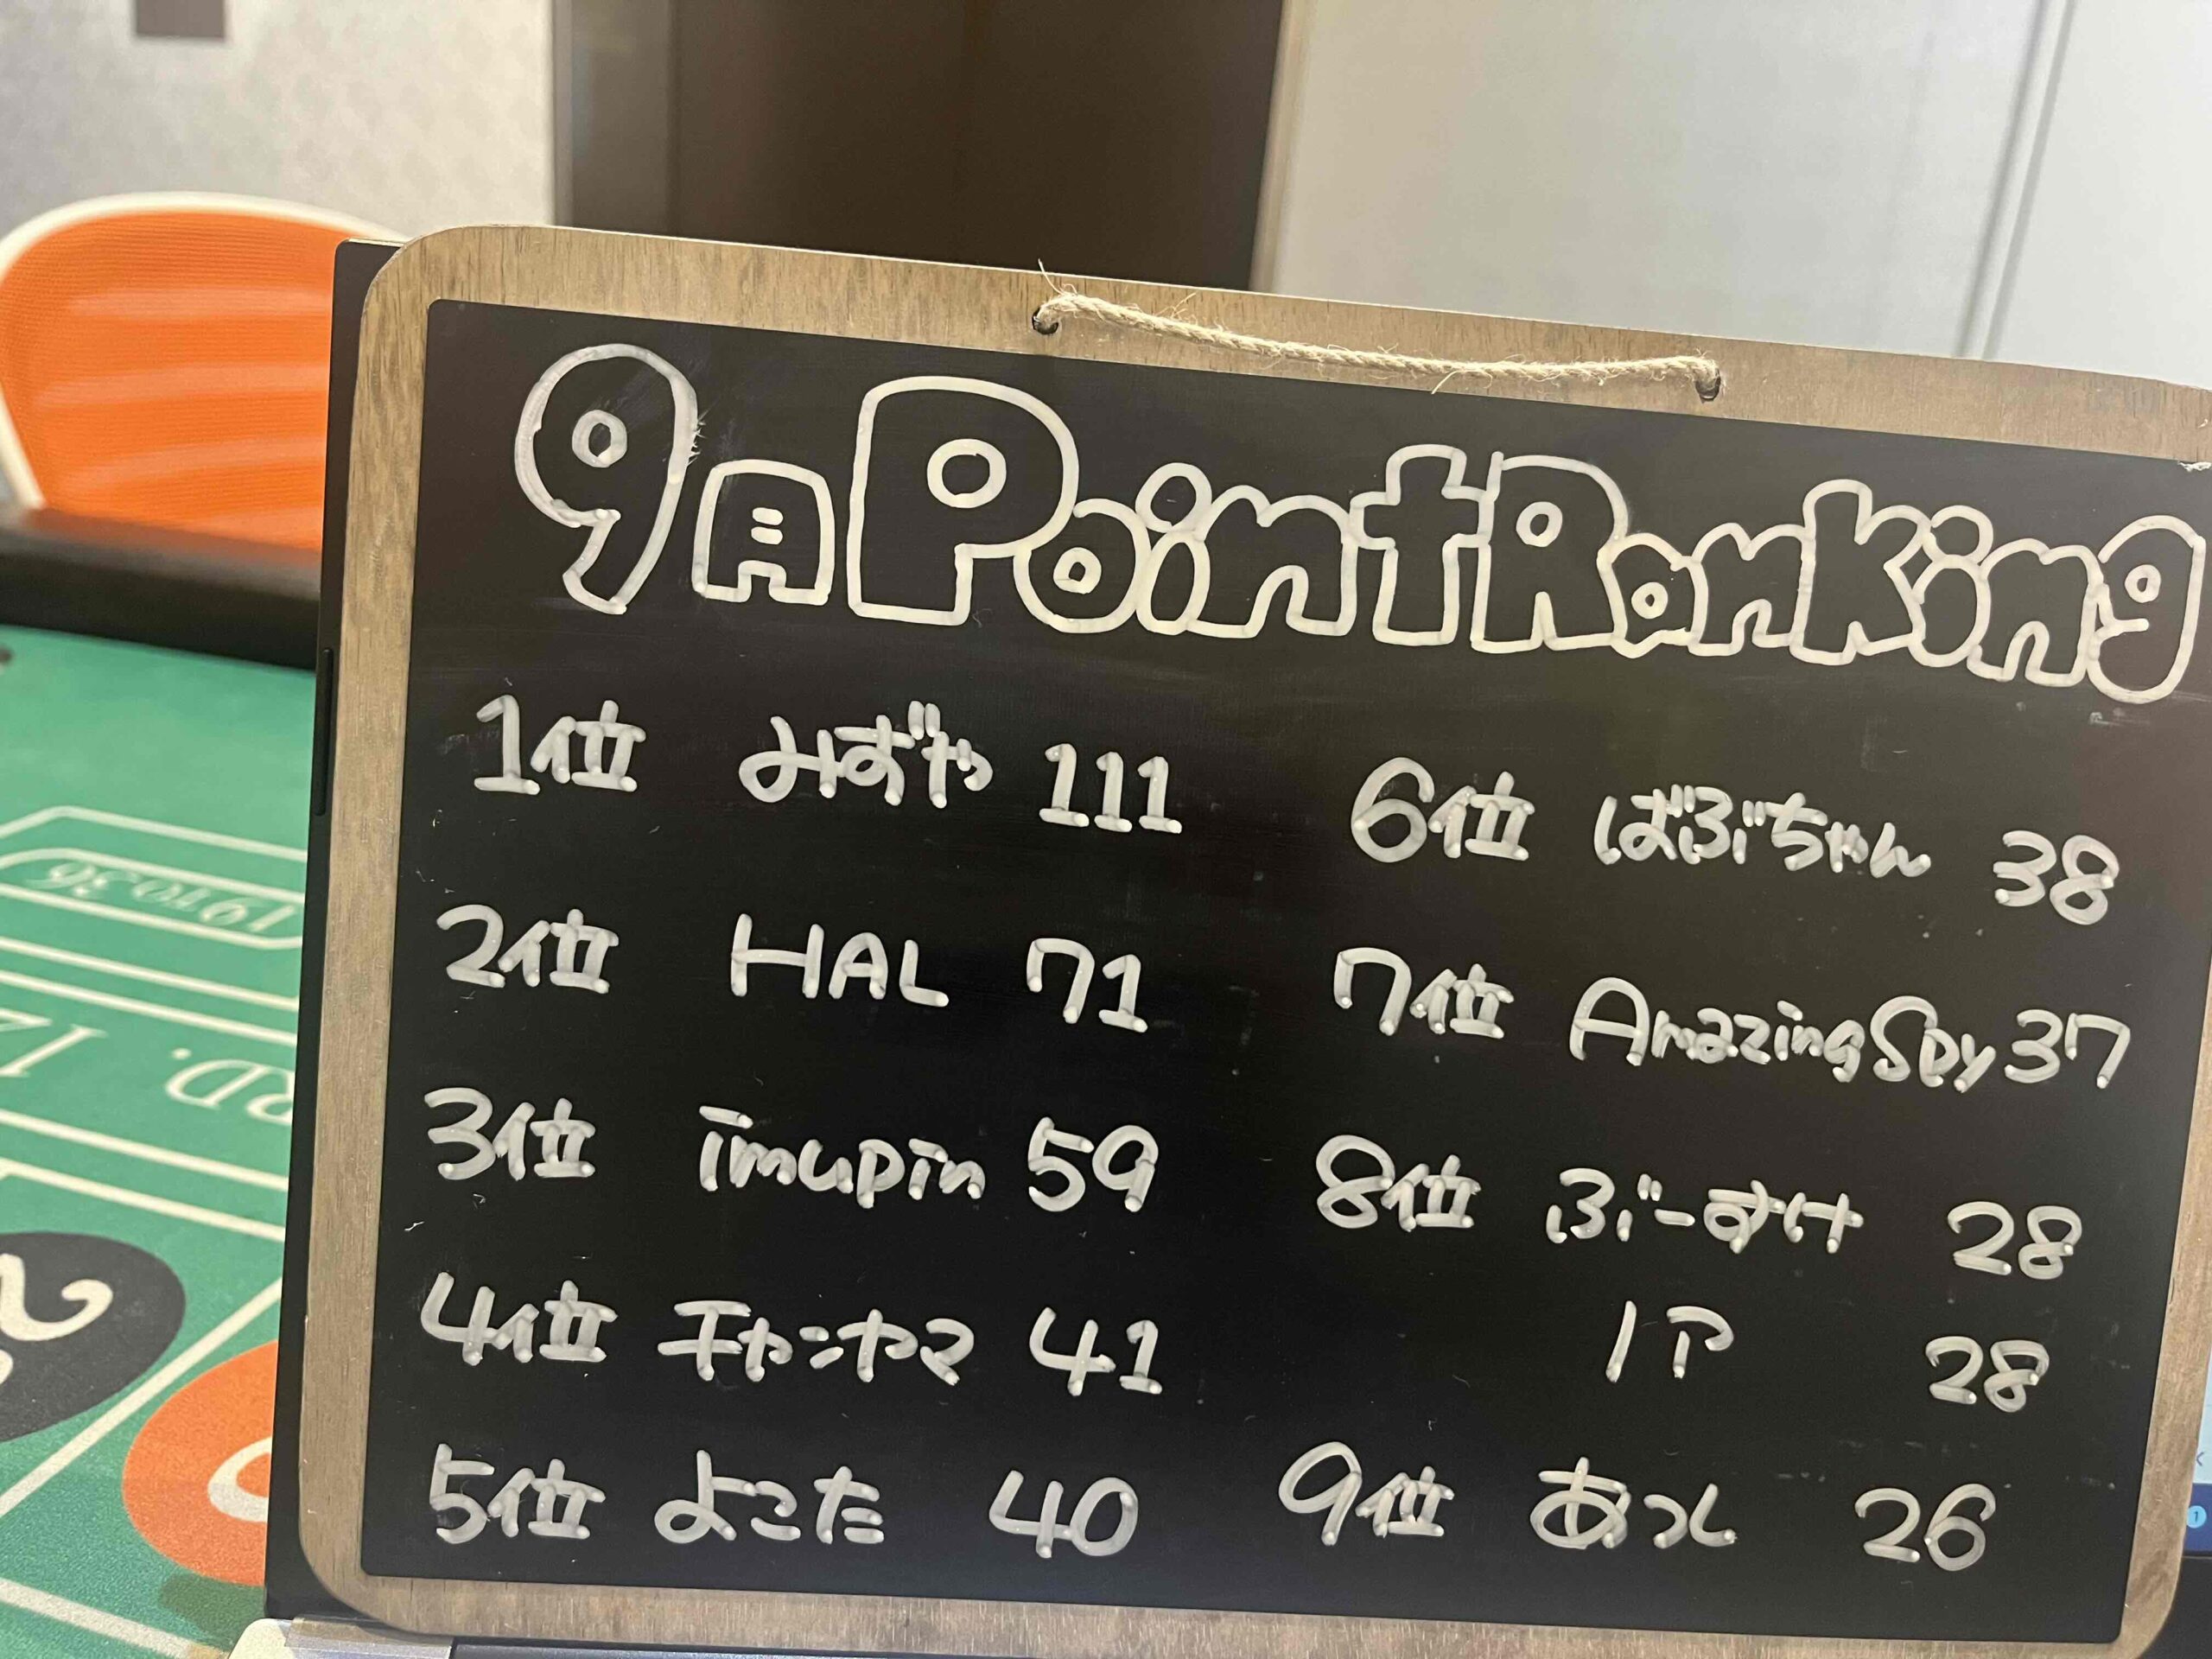 9月PointRanking
1位 みずや 111
2位 HAL 71
3位 imupin 59
4位 チャンヤマ 41
5位 よこた 40
6位 ばぶちゃん 38
7位 AmazingSpy 37
8位 ぶーすけ 28
ノア 28
9位 あつし 26
19 to 36
RD. 12